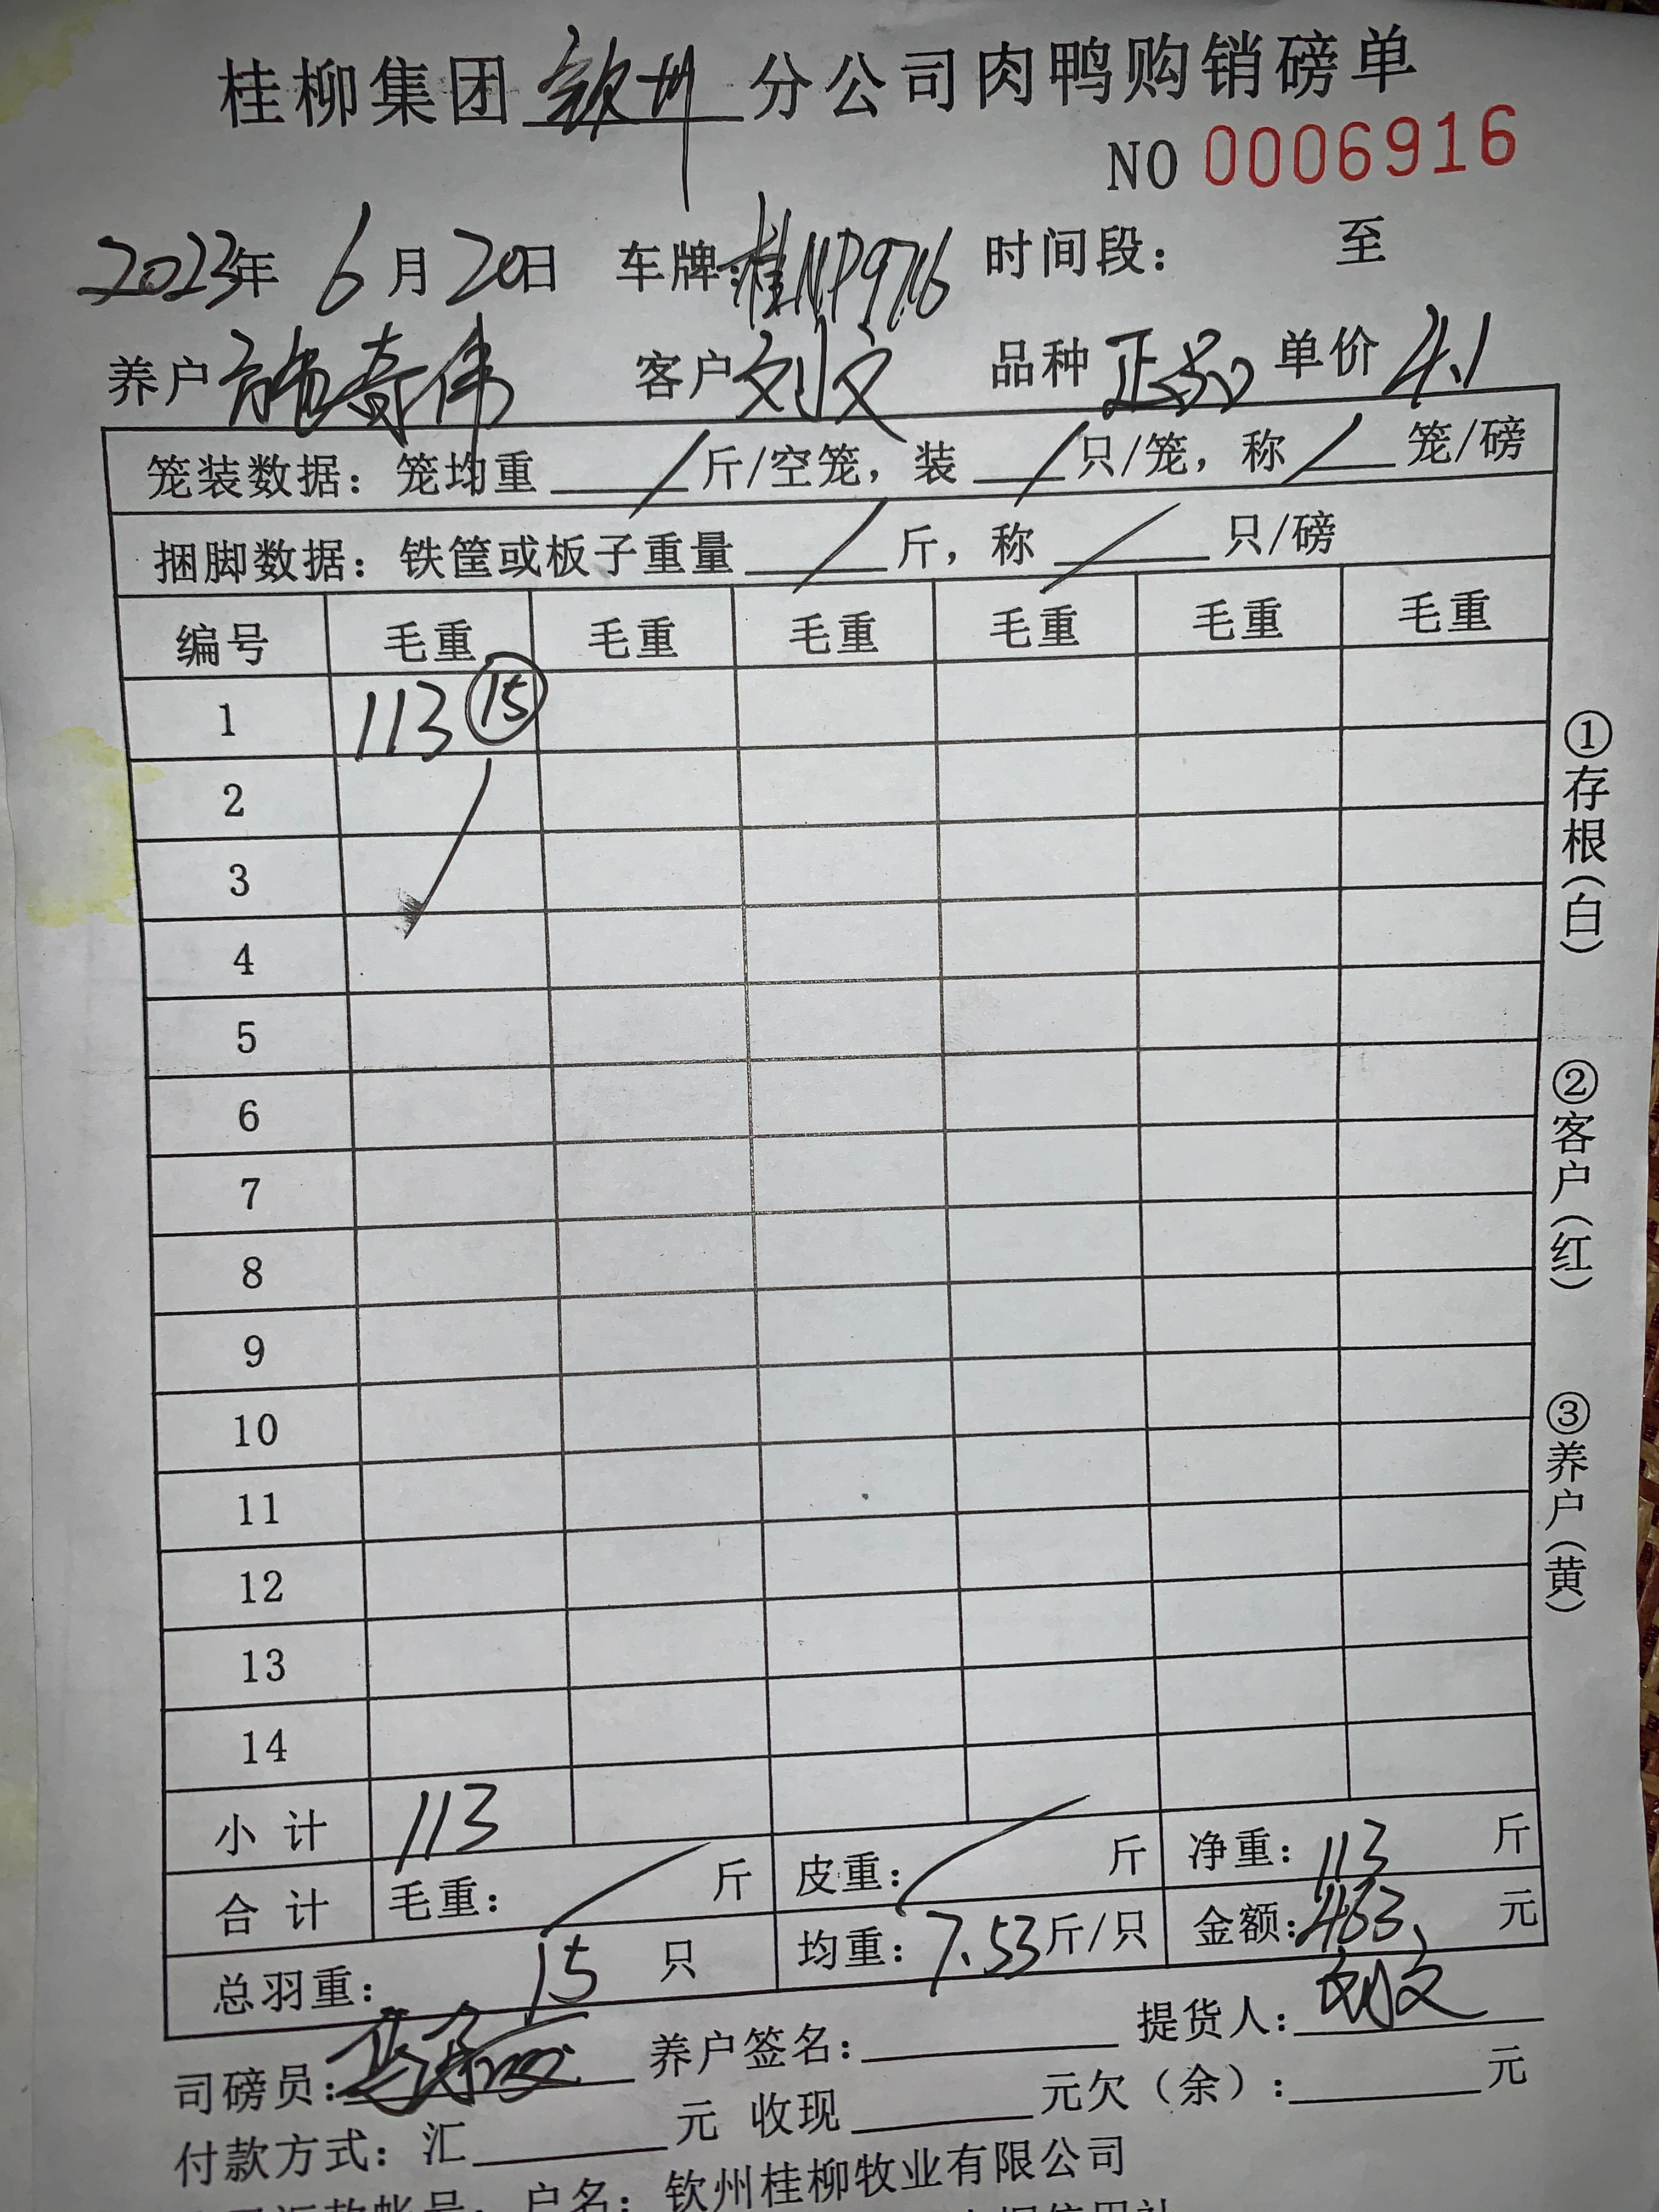 桂柳集团 钦州 分公司肉鸭购销磅单
NO 0006916
2023年 6月20日 车牌:桂NP9716 时间段: 至
养户 韩奇伟 客户 刘文 品种 单价 4.1
笼装数据:笼均重 / 斤/空笼,装 / 只/笼,称 / 笼/磅
捆脚数据:铁筐或板子重量 / 斤,称 / 只/磅
编号 毛重 毛重 毛重 毛重 毛重 毛重
1 113 ⑮
2
3
4
5
6
7
8
9
10
11
12
13
14
小计 113
合计 毛重: / 斤 皮重: / 斤 净重:113 斤
总羽重: 15 只 均重:7.53斤/只 金额:463、元
司磅员: 养户签名: 提货人:刘文
付款方式:汇 元 收现 元欠(余): 元
户名:钦州桂柳牧业有限公司
①存根(白)
②客户(红)
③养户(黄)